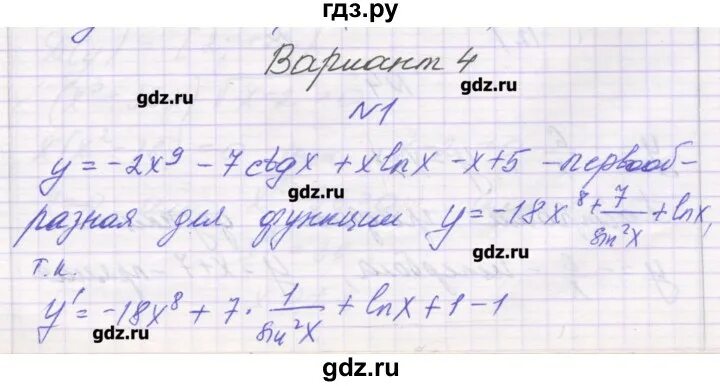 гдз.ру
Вариант 4
gdz.ru
N1
y = -2x⁹ - 7ctgx + xlnx - x + 5 - первооб-
gdz.ru
разная для функции y = -18x⁸ + 7/sin²x + lnx,
gdz.ru
т.к.
y' = -18x⁸ + 7 · 1/sin²x + lnx + 1 - 1
gdz.ru
gdz.ru